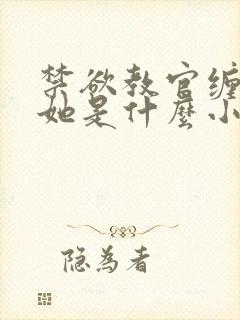 禁欲教官缠
她是什麼小
隐为者